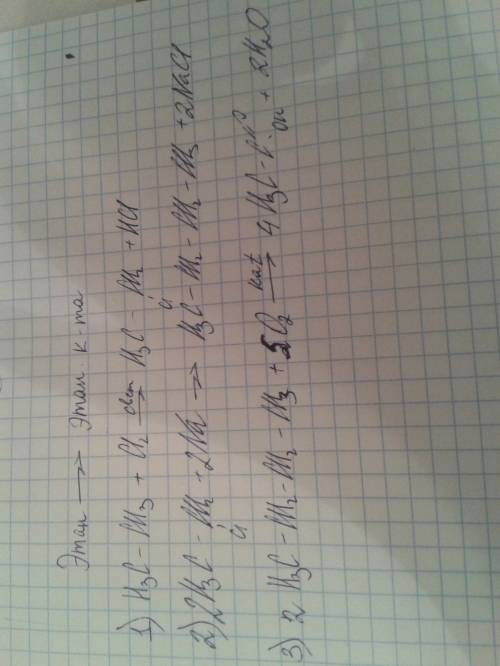 Этан → Этан. к-та
1) H₃C - CH₃ + Cl₂ свет→ H₃C - CH₂ + HCl
Cl
2) 2H₃C - CH₂ + 2Na → H₃C - CH₂ - CH₂ - CH₃ + 2NaCl
Cl
3) 2 H₃C - CH₂ - CH₂ - CH₃ + 5O₂ kat→ 4 H₃C - C=O + 2H₂O
OH